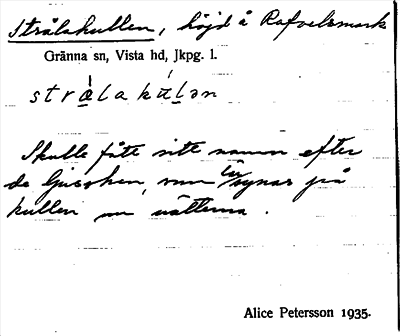 Strålakullen, höjd å Rafvelsmark
Gränna sn, Vista hd, Jkpg. l.
strålakulən
Skulle fått sitt namn efter
de ljussken, som synas på
kullen om nätterna.
Alice Petersson 1935.